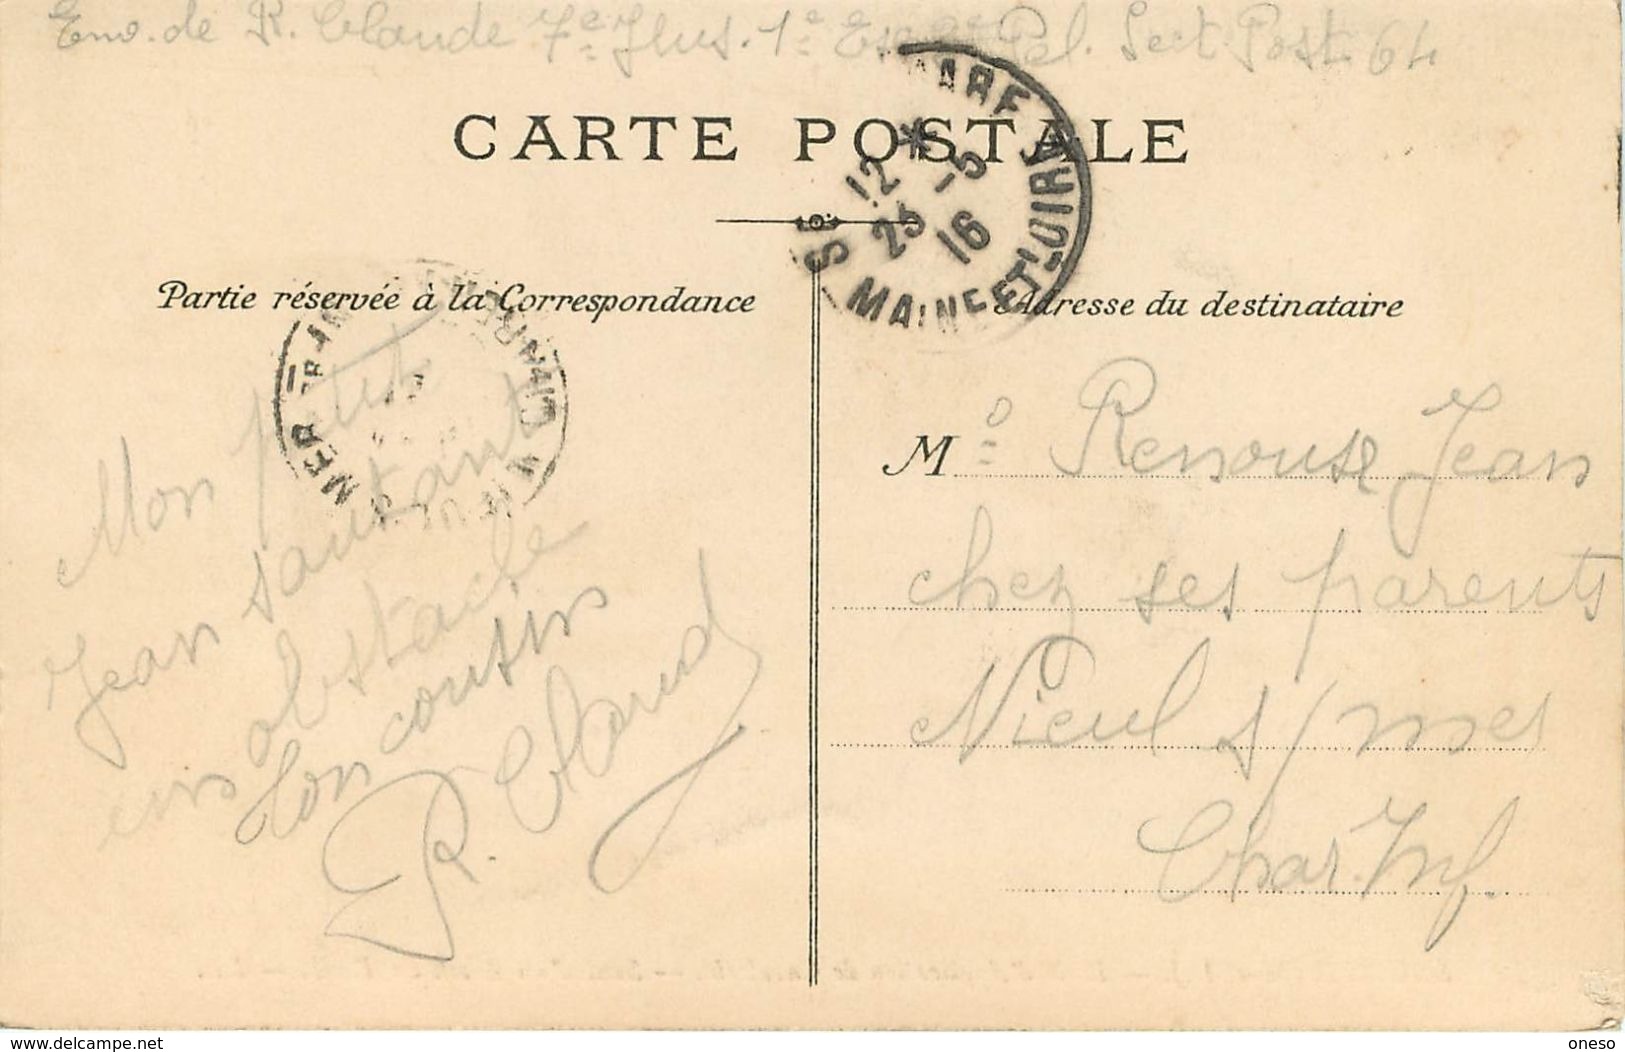 Env. de R. Claude 7e Hus. 1e Esc 2e Pel. Sect Post 64
CARTE POSTALE
ARE
MAINE-ET-LOIRE
12 *
23 -5
16
Partie réservée à la Correspondance
Adresse du destinataire
Mon petit
Jean sautant
un obstacle
Ton cousin
R. Claude
Me Renouse Jean
chez ses parents
Nieul s/mer
Char. Inf.
www.delcampe.net
oneso